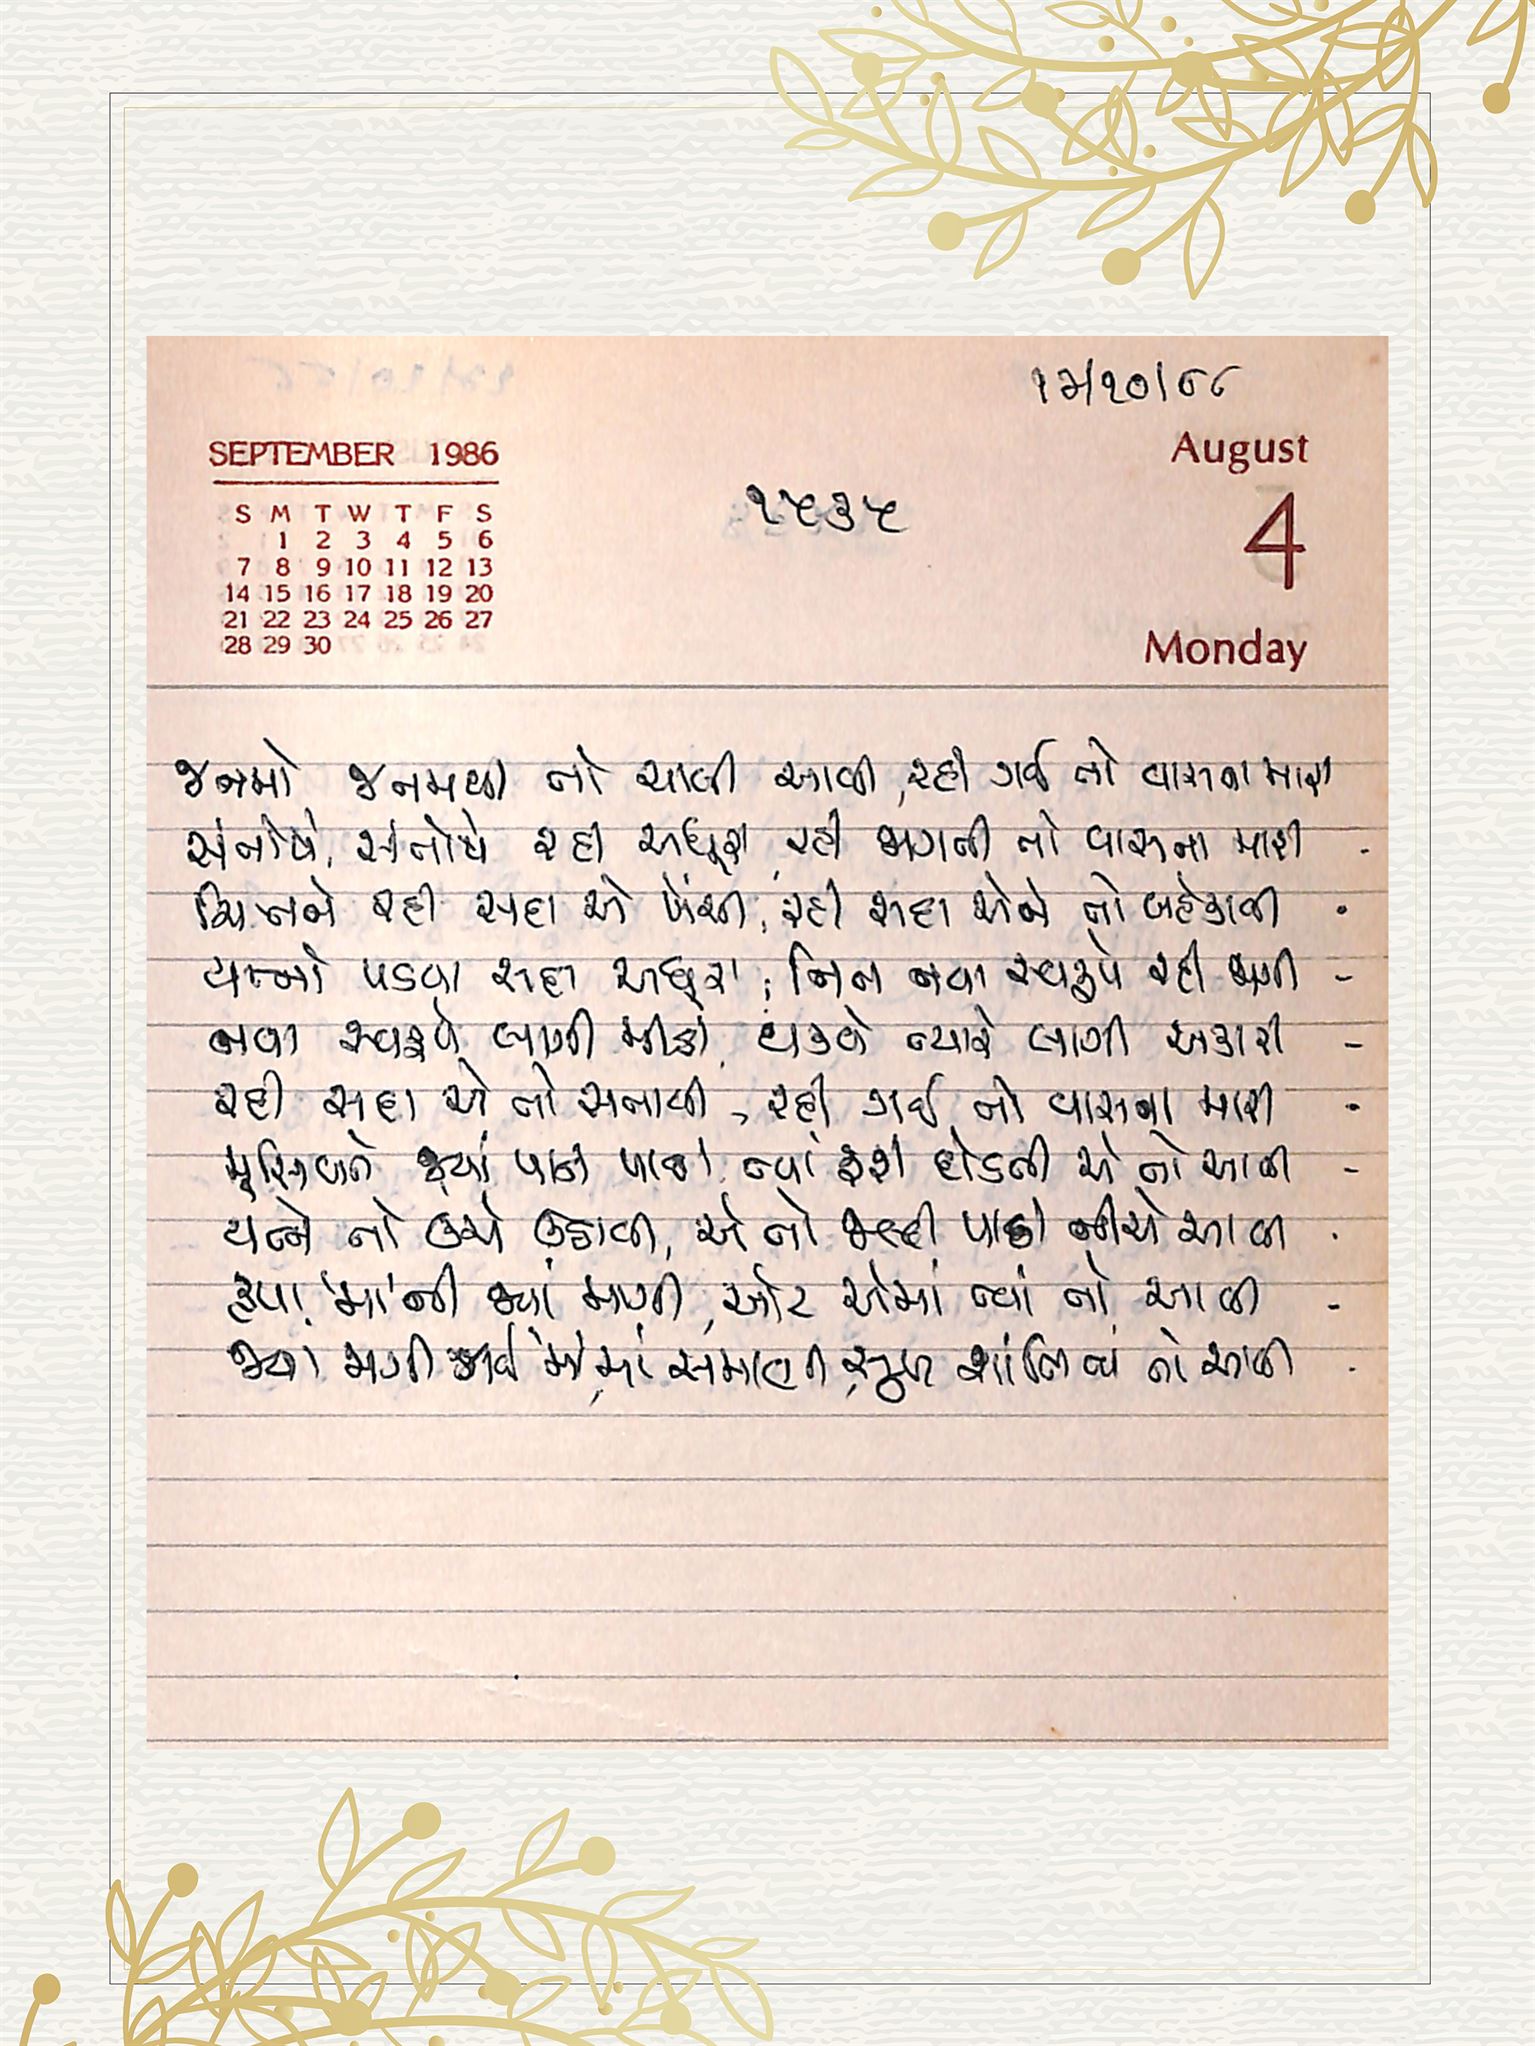 ૧૩/૧૦/૮૮
SEPTEMBER 1986
August
S M T W T F S
૧૫૩૫
4
1 2 3 4 5 6
7 8 9 10 11 12 13
14 15 16 17 18 19 20
21 22 23 24 25 26 27
28 29 30
Monday
જનમો જનમથી તો ચાલી આવી, રહી ગઈ તો વાસના મારી
સંતોષે, સંતોષે રહી અધૂરી, રહી ભાગતી તો વાસના મારી -
ચિત્તને રહી સદા એ ખેંચી, રહી સદા એને તો બહેકાવી •
યત્નો પડયા સદા અધૂરા, નિત નવા સ્વરૂપે રહી જાગી -
નવા સ્વરૂપે લાગી મીઠી, થકવે ત્યારે લાગી અકારી -
રહી સદા એ તો સતાવી, રહી ગઈ તો વાસના મારી •
વૃત્તિને જ્યાં પાછી વાળી, ત્યાં ફરી દોડતી એ તો આવી -
યત્ને તો દઈએ હટાવી, એ તો જલ્દી પાછી જાયે આવી .
કૃપા 'મા' ની જ્યાં માગી, ઓટ એમાં ત્યાં તો આવી -
જ્યાં ભાગી જઈ 'મા' માં સમાણી, સુખ શાંતિ ત્યાં તો આવી .